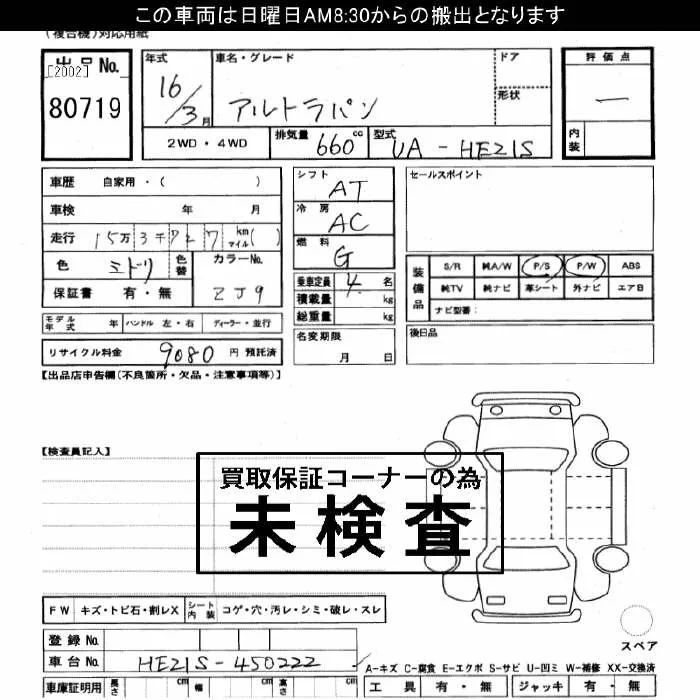 この車両は日曜日AM8:30からの搬出となります
(複合機)対応用紙
出品No.
[2002]
80719
年式
16/3月
車名・グレード
アルトラパン
ドア
形状
評価点
一
内装
2WD・4WD
排気量 660 cc
型式 UA-HE21S
車歴 自家用・( )
車検 年 月
走行 15万3千727 km マイル( )
色 ミドリ
色替
カラーNo.
ZJ9
保証書 有・無
シフト AT
冷房 AC
燃料 G
乗車定員 4 名
積載量 kg
総重量 kg
セールスポイント
装備品
S/R 純A/W P/S P/W ABS
純TV 純ナビ 革シート 外ナビ エアB
ナビ型番:
モデル年式 年 ハンドル 左・右 ディーラー・並行
名変期限
月 日
後日品
リサイクル料金 9080 円 預託済
【出品店申告欄(不良箇所・欠品・注意事項等)】
【検査員記入】
買取保証コーナーの為
未検査
FW キズ・トビ石・割レX
シート内装 コゲ・穴・汚レ・シミ・破レ・スレ
スペア
登録No.
車台No. HE21S-450222
A-キズ C-腐食 E-エクボ S-サビ U-凹ミ W-補修 XX-交換済
車庫証明用 長さ cm 幅 cm 高さ cm
工具 有・無 ジャッキ 有・無